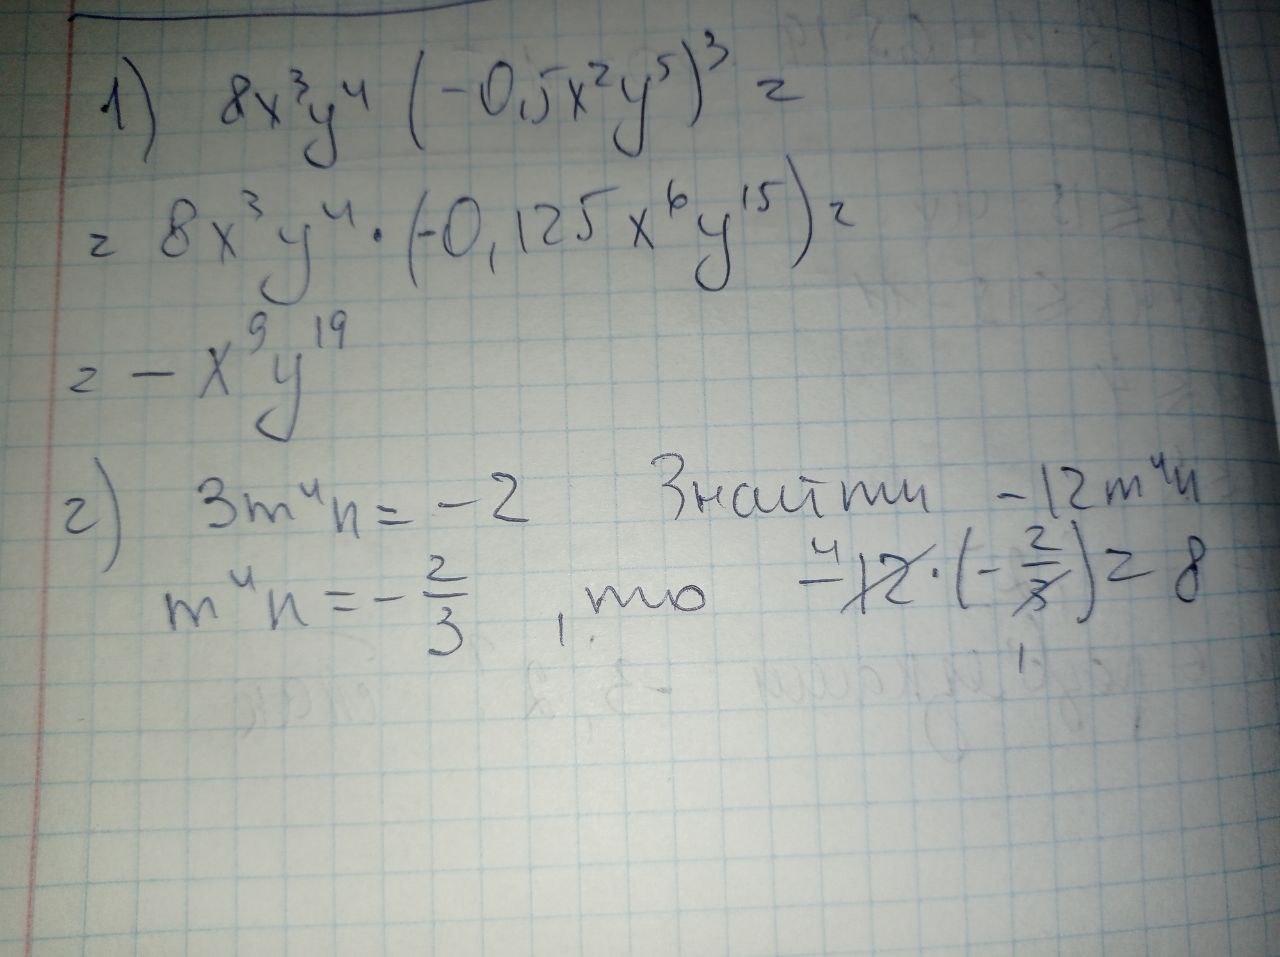 1) 8x³y⁴ (-0,5x²y⁵)³ =
= 8x³y⁴ · (-0,125x⁶y¹⁵) =
= - x⁹y¹⁹
2) 3m⁴n = -2 Знайти -12m⁴n
m⁴n = - 2/3 , то -12 · (- 2/3) = 8
4
1